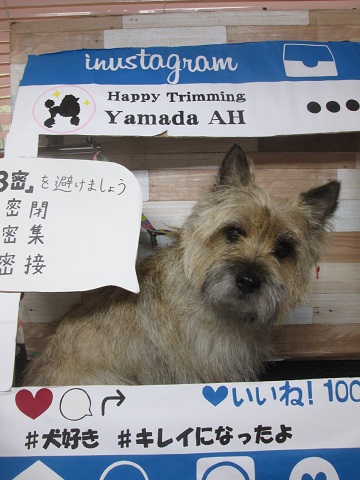 inustagram
Happy Trimming
Yamada AH
3密」を避けましょう
密閉
密集
密接
いいね! 100
#犬好き #キレイになったよ